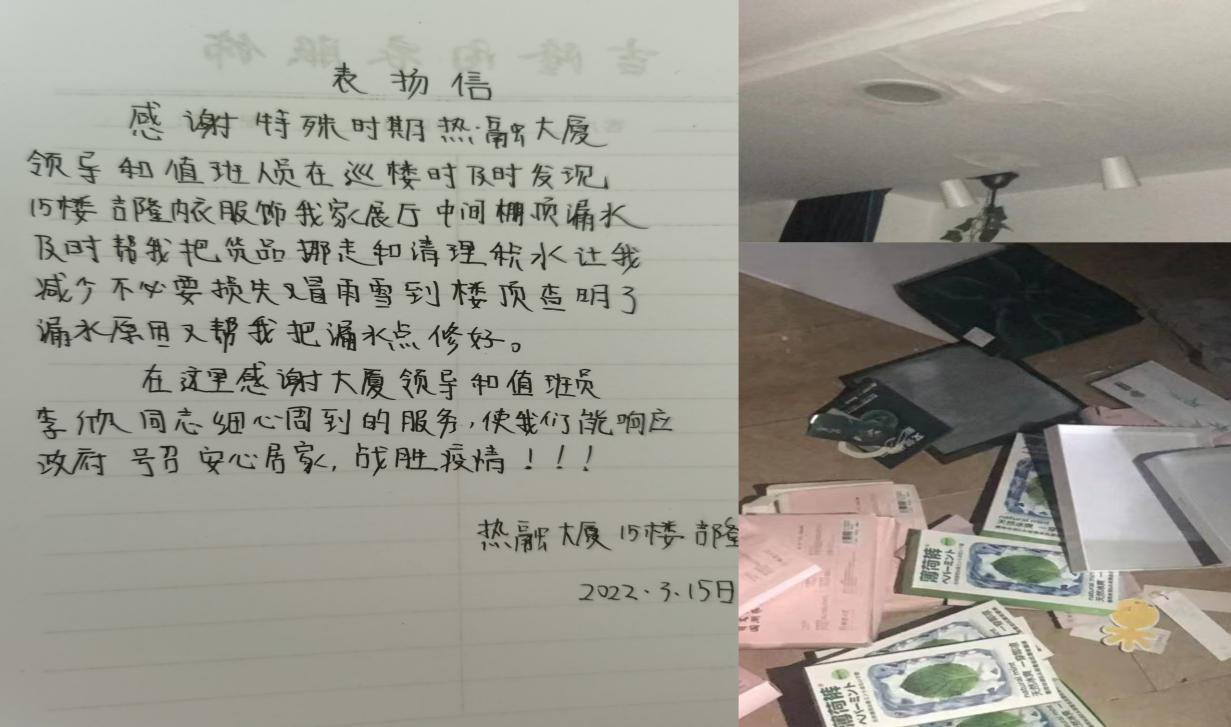 表扬信
感谢特殊时期热融大厦
领导和值班人员在巡楼时及时发现
15楼吉隆内衣服饰我家展厅中间棚顶漏水
及时帮我把货品挪走和清理积水让我
减少不必要损失又冒雨雪到楼顶查明了
漏水原因又帮我把漏水点修好。
在这里感谢大厦领导和值班员
李欣同志细心周到的服务,使我们能响应
政府号召安心居家,战胜疫情!!!
热融大厦15楼吉隆
2022.3.15日
薄荷裤
ペパーミント
天然冰爽
薄荷裤
ペパーミント
natural mint
天然冰爽